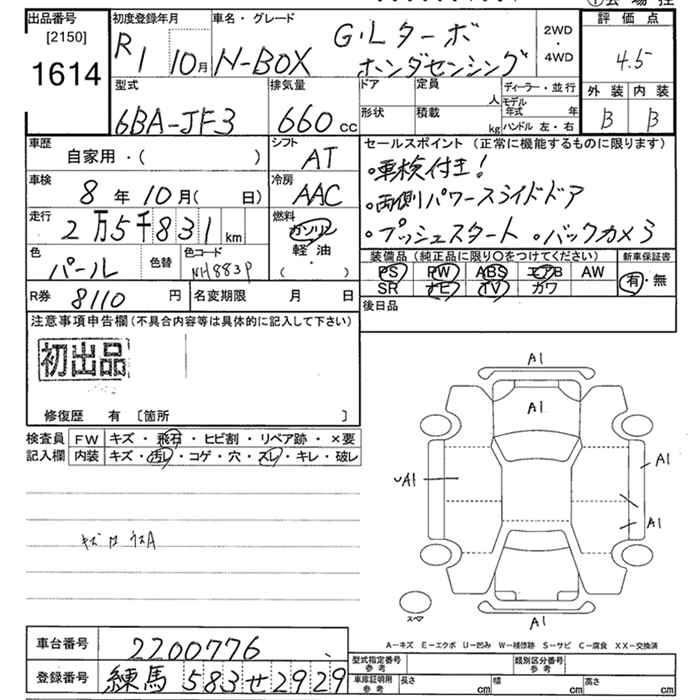 出品番号 [2150] 1614
初度登録年月 R1 10月
車名・グレード N-BOX G・Lターボ ホンダセンシング
2WD・4WD
評価点 4.5
外装 内装
B B
型式 6BA-JF3
排気量 660cc
ドア 定員 人
形状 積載 kg
ディーラー・並行
モデル年式 年
ハンドル 左・右
車歴 自家用・( )
シフト AT
セールスポイント(正常に機能するものに限ります)
・車検付き!
・両側パワースライドドア
・プッシュスタート ・バックカメラ
車検 8年10月( 日)
冷房 AAC
走行 2万5千831km
燃料 ガソリン・軽油・( )
色 パール 色替 色コード NH883P
装備品(純正品に限り○をつけてください) 新車保証書
PS PW ABS エアB AW 有・無
SR ナビ TV カワ
R券 8110円 名変期限 月 日
後日品
注意事項申告欄(不具合内容等は具体的に記入して下さい)
初出品
修復歴 有 [箇所 ]
検査員 FW キズ・飛石・ヒビ割・リペア跡・×要
記入欄 内装 キズ・汚レ・コゲ・穴・スレ・キレ・破レ
A1
A1
A1
A1
A1
A1
スペア
A-キズ E-エクボ U-凹み W-補修跡 S-サビ C-腐食 XX-交換済
車台番号 2200776
型式指定番号 参考 類別区分番号 参考
登録番号 練馬 583 せ 2929
車庫証明用 参考 長さ cm 幅 cm 高さ cm